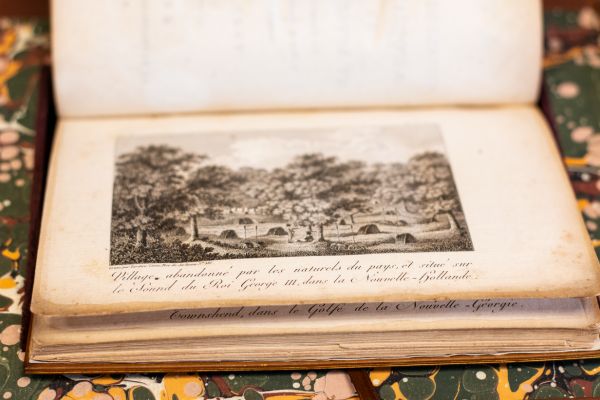 Village, abandonné par les naturels du pays, et situé sur
le Sound du Roi George III, dans la Nouvelle-Hollande.
Townshend, dans le Golfe de la Nouvelle-Géorgie.